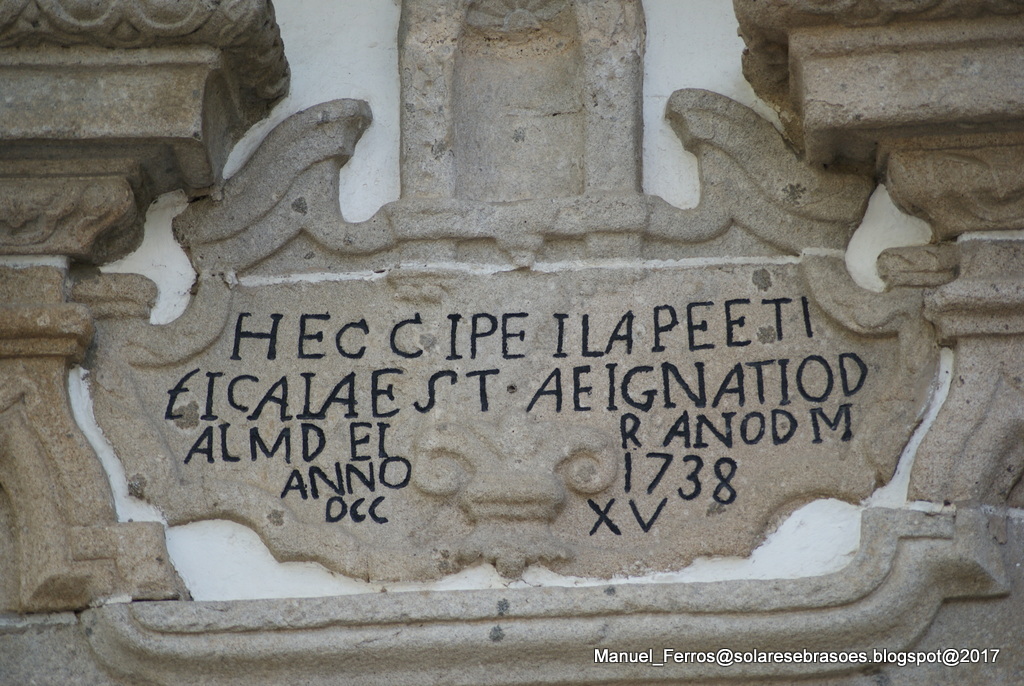 HECC IPE ILAPEETI
EICAIAEST · AEIGNATIOD
ALMD EI R ANODM
ANNO 1738
DCC XV
Manuel_Ferros@solaresebrasoes.blogspot@2017